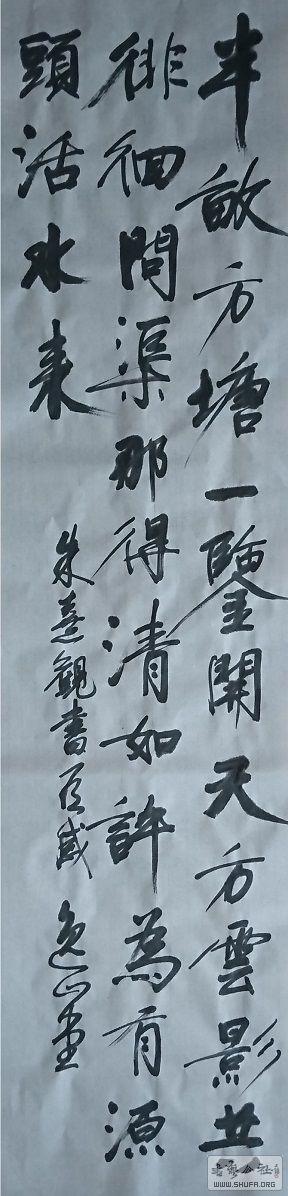 半畝方塘一鑒開天方雲影共
徘徊問渠那得清如許為有源
頭活水來
朱熹觀書有感
書藝公社
WWW.SHUFA.ORG